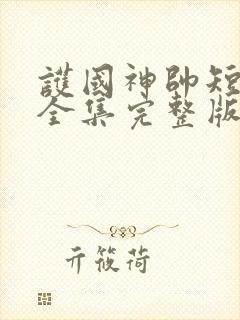 護國神帥短
全集完整版
亓筱荷